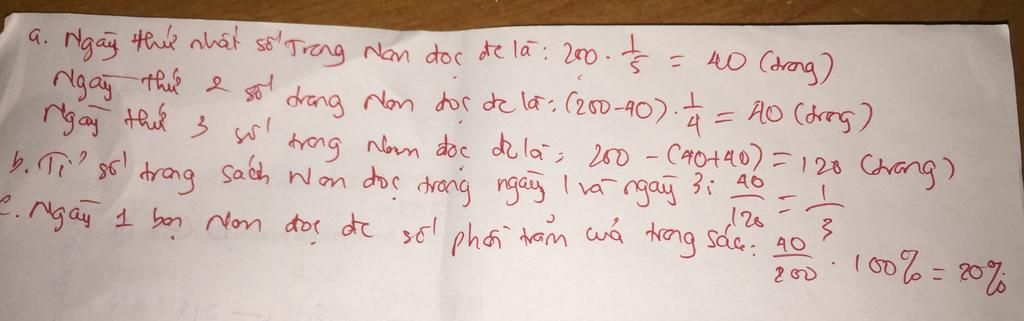 a. Ngày thứ nhất số Trang Nam đọc đc là: 200 . 1/5 = 40 (trang)
Ngày thứ 2 số trang Nam đọc đc là: (200-40) . 1/4 = 40 (trang)
Ngày thứ 3 số trang Nam đọc đc là: 200 - (40+40) = 120 (trang)
b. Tỉ số trang sách Nam đọc trong ngày 1 và ngày 3: 40/120 = 1/3
c. Ngày 1 bạn Nam đọc đc số phần trăm của trang sác: 40/200 . 100% = 20%